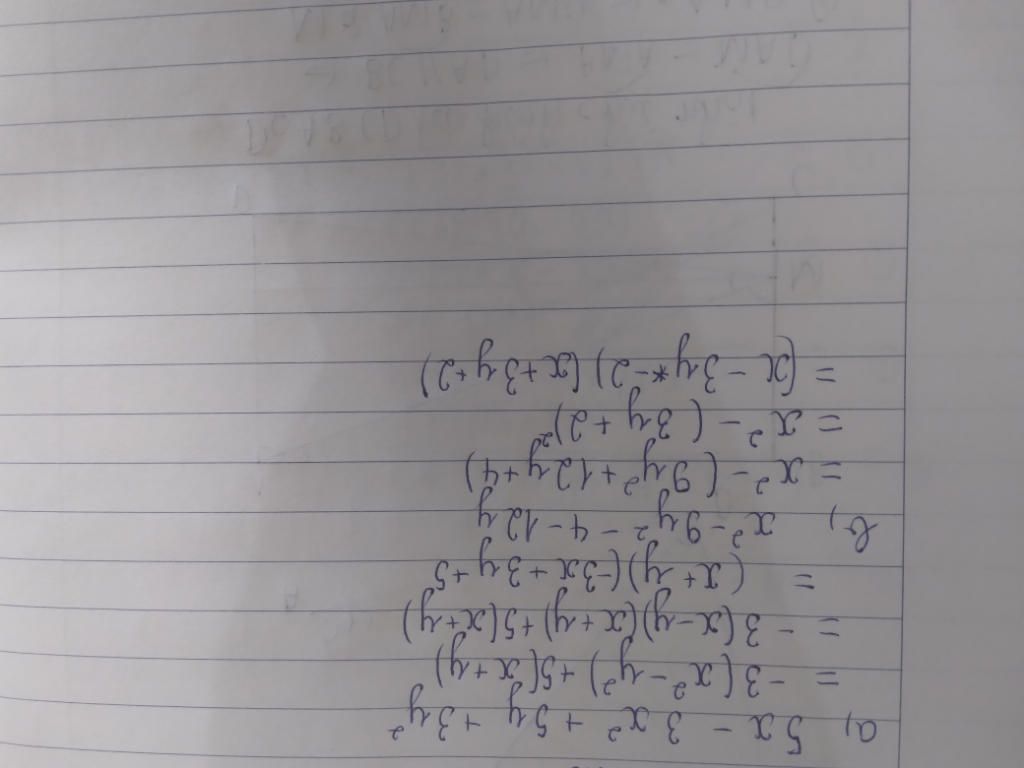 a, 5x - 3x² + 5y + 3y²
= -3(x² - y²) + 5(x + y)
= -3(x - y)(x + y) + 5(x + y)
= (x + y)(-3x + 3y + 5
b, x² - 9y² - 4 - 12y
= x² - (9y² + 12y + 4)
= x² - (3y + 2)²
= (x - 3y - 2)(x + 3y + 2)